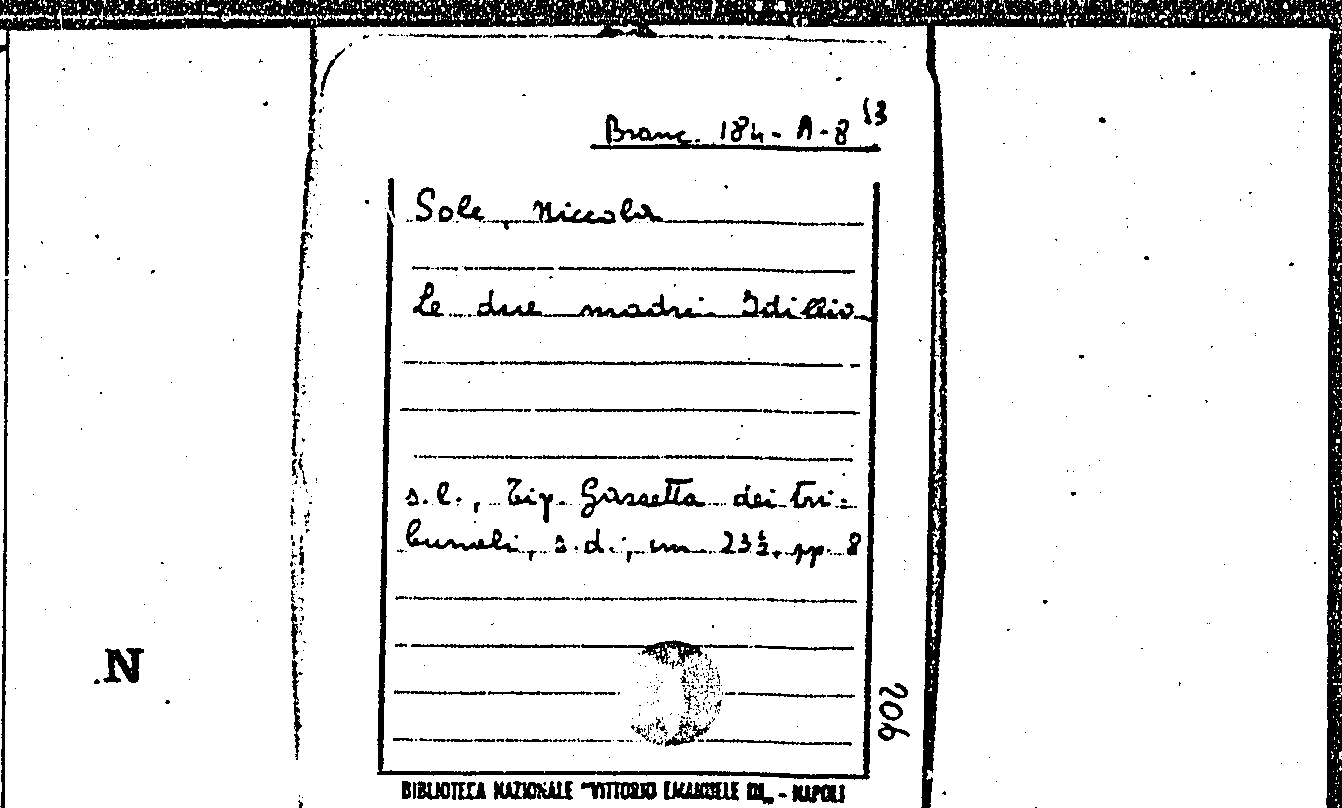 Branc. 184-A-8 13
Sole, Niccola
Le due madri. Idillio.
s.l., Tip. Gazzetta dei tri=
bunali, s.d., cm 23½, pp. 8
N
206
BIBLIOTECA NAZIONALE "VITTORIO EMANUELE III„ - NAPOLI